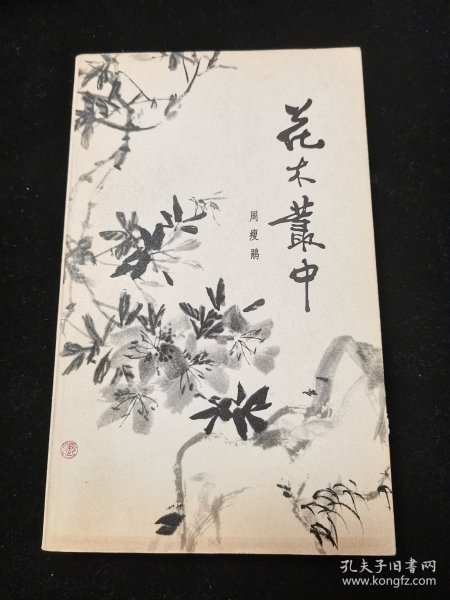 花木叢中
周瘦鹃
孔夫子旧书网
www.kongfz.com